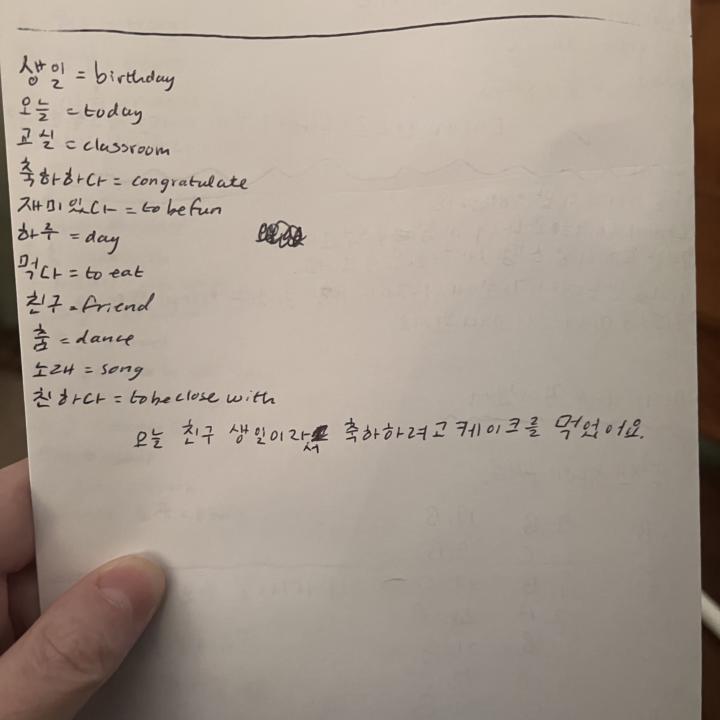 생일 = birthday
오늘 = today
교실 = classroom
축하하다 = congratulate
재미있다 = to be fun
하루 = day
먹다 = to eat
친구 = friend
춤 = dance
노래 = song
친하다 = to be close with
오늘 친구 생일이라서 축하하려고 케이크를 먹었어요.